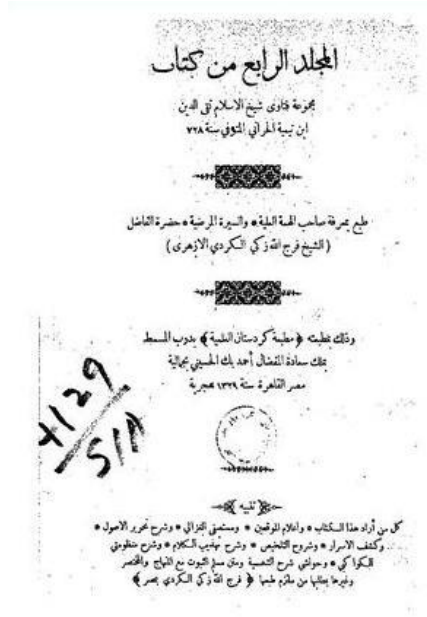 المجلد الرابع من كتاب
مجموعة فتاوى شيخ الاسلام تقي الدين
ابن تيمية الحراني المتوفى سنة ٧٢٨
طبع بمعرفة صاحب الهمة العلية * والسيرة المرضية * حضرة الفاضل
( الشيخ فرج الله زكي الكردي الازهرى )
وذلك بمطبعته ﴿ مطبعة كردستان العلمية ﴾ بدرب المسمط
بملك سعادة المفضال أحمد بك الحسيني بجمالية
مصر القاهرة سنة ١٣٢٩ هجرية
تنبيه
كل من أراد هذا الكتاب * واعلام الموقعين * ومستصفى الغزالي * وشرح تحرير الاصول *
وكشف الاسرار * وشروح التلخيص * وشرح تهذيب الكلام * وشرح منظومتي
الكواكبي * وحواشي شرح الشمسية ومتن مسلم الثبوت مع المنهاج والمختصر
وغيرها يطلبها من ملتزم طبعها ﴿ فرج الله زكي الكردي بمصر ﴾